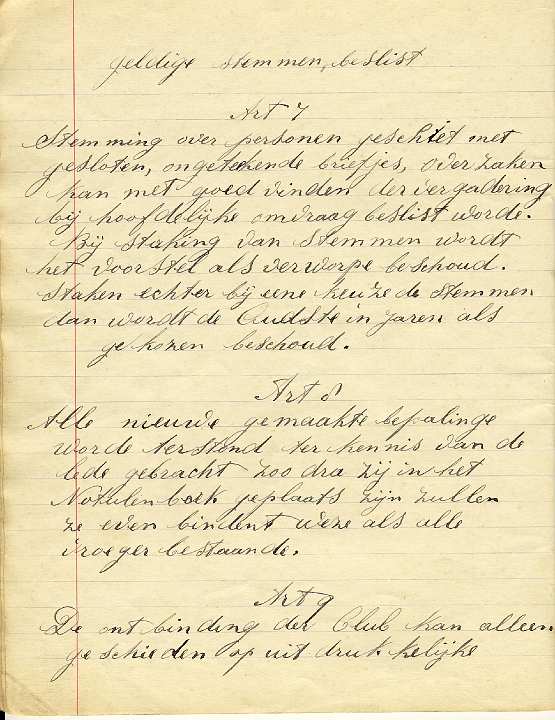 geldige stemmen, beslist
Art 7
Stemming over personen geschiet met
gesloten, ongetekende briefjes, over zaken
kan met goedvinden der vergadering
bij hoofdelijke omvraag beslist worde.
Bij staking van stemmen wordt
het voorstel als verworpe beschoud.
Staken echter bij eene keuze de stemmen
dan wordt de Oudste in jaren als
gekozen beschoud.
Art 8
Alle nieuwe gemaakte bepalinge
worde terstond ter kennis van de
lede gebracht zoo dra zij in het
Notulen boek geplaats zijn zullen
ze even bindent weze als alle
vroeger bestaande.
Art 9
De ontbinding der Club kan alleen
geschieden op uitdrukkelijke